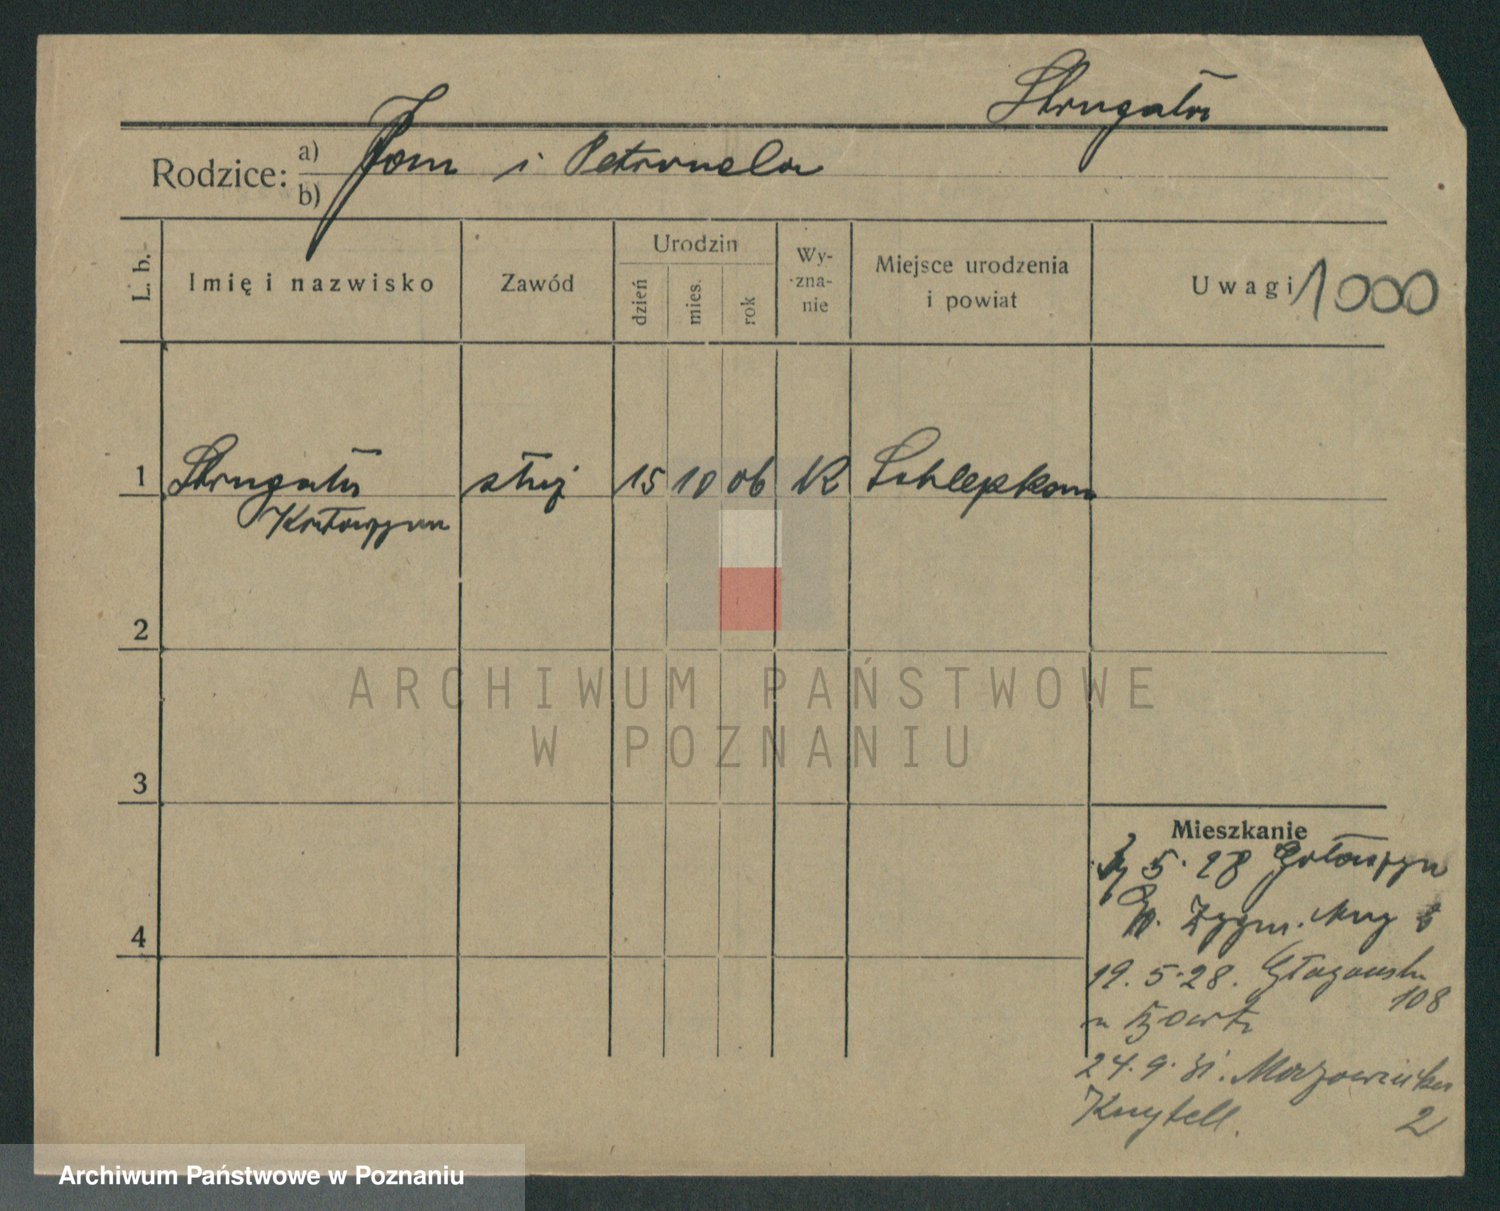 Strugała
Rodzice: a) Jan i Petronela
b)
L. b. Imię i nazwisko Zawód Urodzin dzień mies. rok Wy-zna-nie Miejsce urodzenia i powiat Uwagi 1000
1 Strugała służ 15 10 06 K Schlepkau
Katarzyna
2
ARCHIWUM PAŃSTWOWE
W POZNANIU
3
Mieszkanie
5.28
Zygm. Aug
4
19.5.28. Głogowska
108
24.9.31. Mazowiecka
Knytell. 2
Archiwum Państwowe w Poznaniu